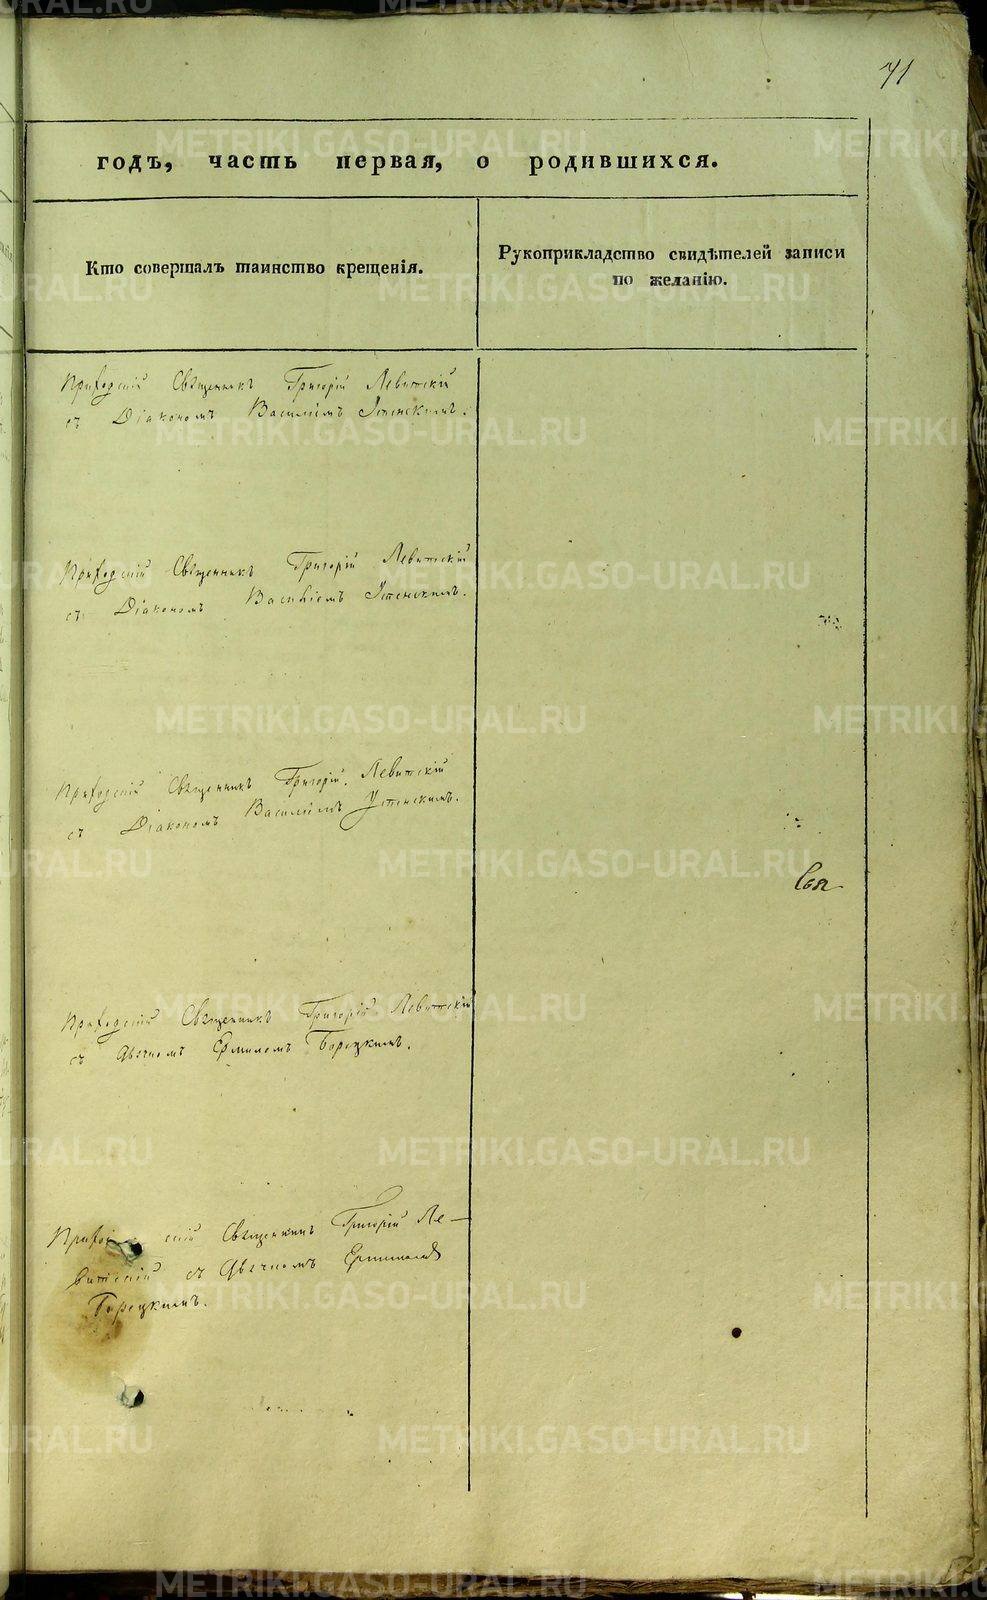 71
годъ, часть первая, о родившихся.
Кто совершалъ таинство крещенія.
Рукоприкладство свидѣтелей записи
по желанію.
Приходскій Священникъ Григорій Левитскій
съ Діакономъ Василіемъ Успенскимъ.
Приходскій Священникъ Григорій Левитскій
съ Діакономъ Василіемъ Успенскимъ.
Приходскій Священникъ Григорій Левитскій
съ Діакономъ Василіемъ Успенскимъ.
Приходскій Священникъ Григорій Левитскій
съ Дьячкомъ Ермиломъ Борецкимъ.
Священник Григорій Ле-
витскій съ Дьячкомъ
Борецкимъ.
METRIKI.GASO-URAL.RU